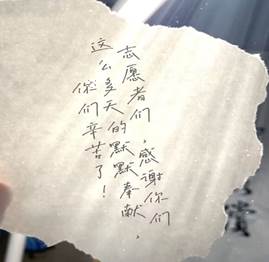 志愿者们,感谢你们
这么多天的默默奉献,
你们辛苦了!